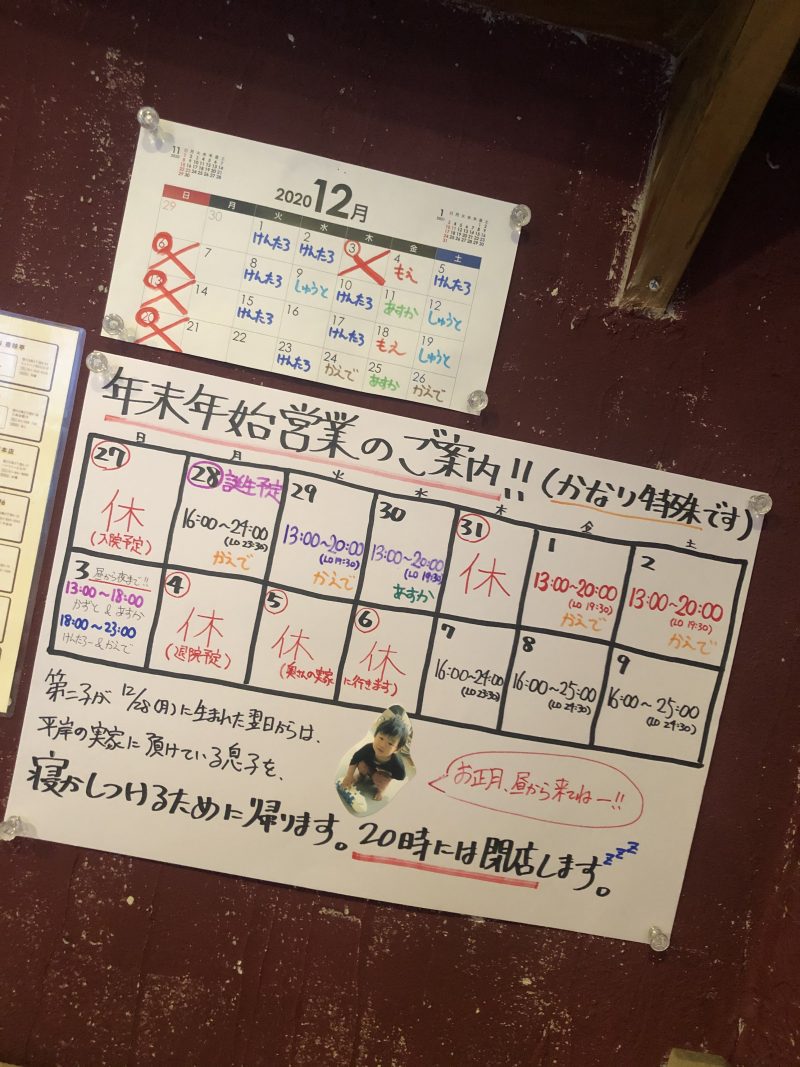 2020 12月
11
1
日 月 火 水 木 金 土
29 30 1 けんたろ 2 けんたろ 3 4 もえ 5 けんたろ
6 7 8 けんたろ 9 しゅうと 10 けんたろ 11 あすか 12 しゅうと
13 14 15 けんたろ 16 17 けんたろ 18 もえ 19 しゅうと
20 21 22 23 けんたろ 24 かえで 25 あすか 26 かえで
年末年始営業のご案内!! (かなり特殊です)
日 月 火 水 木 金 土
27 休 (入院予定)
28 誕生予定 16:00~24:00 (LO 23:30) かえで
29 13:00~20:00 (LO 19:30) かえで
30 13:00~20:00 (LO 19:30) あすか
31 休
1 13:00~20:00 (LO 19:30) かえで
2 13:00~20:00 (LO 19:30) かえで
3 昼から夜まで!! 13:00~18:00 かずと & あすか 18:00~23:00 けんたろー & かえで
4 休 (退院予定)
5 休 (奥さんの実家
6 休 に行きます)
7 16:00~24:00 (LO 23:30)
8 16:00~25:00 (LO 24:30)
9 16:00~25:00 (LO 24:30)
第二子が 12/28(月)に生まれた翌日からは、
平岸の実家に預けている息子を、
寝かしつけるために帰ります。20時には閉店します。zzz
お正月、昼から来てねー!!